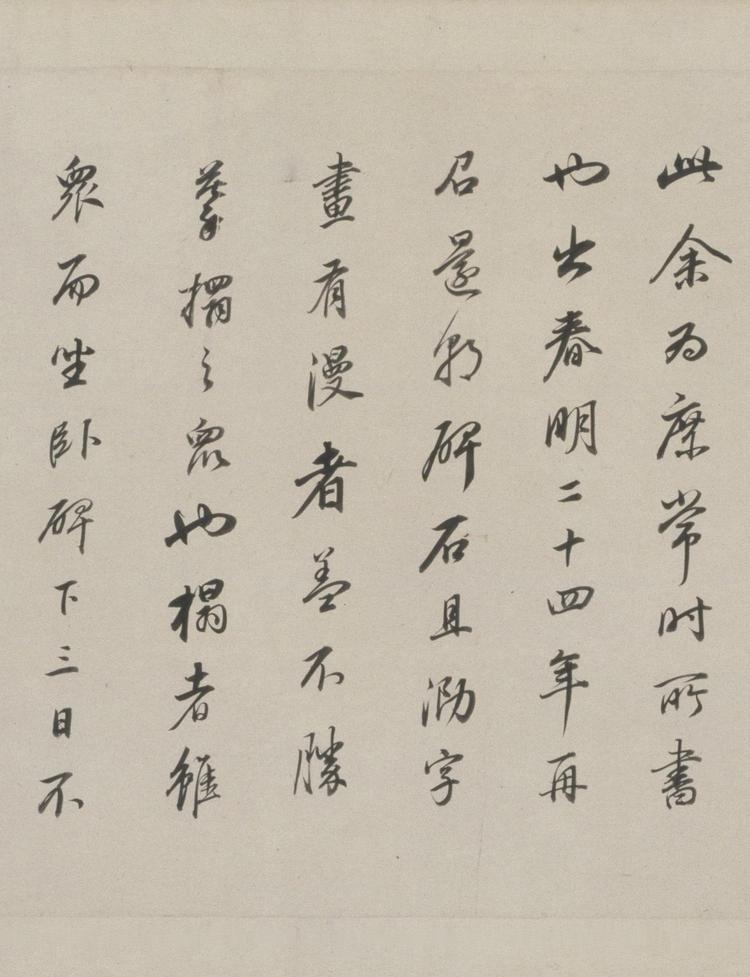 此余為庶常時所書
也出春明二十四年再
召還朝碑石且泐字
畫有漫者盖不勝
摹搨之衆也榻者雖
衆而坐臥碑下三日不